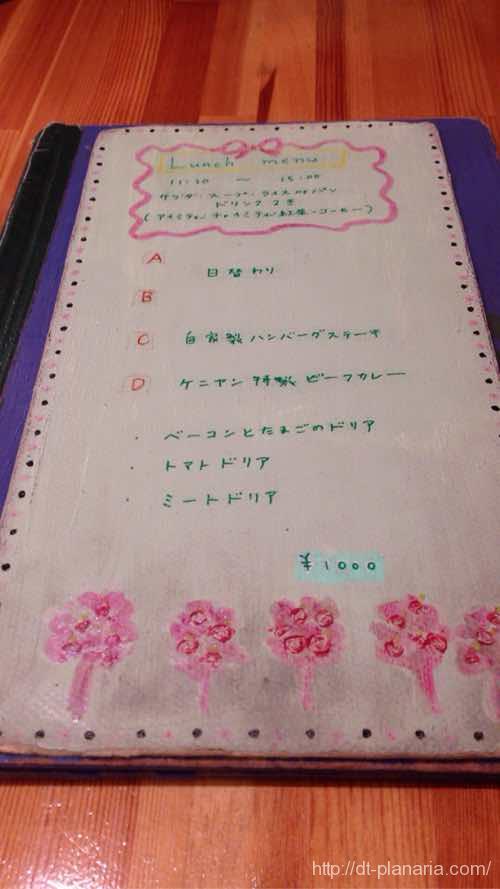 Lunch menu
11:30 〜 15:00
サラダ・スープ・ライスorパン
ドリンクつき
(アイミティ、チャイ、ミティル、紅茶・コーヒー)
A
日替わり
B
C 自家製ハンバーグステーキ
D ケニヤン特製 ビーフカレー
・ ベーコンとたまごのドリア
・ トマトドリア
・ ミートドリア
¥1000
http://dt-planaria.com/